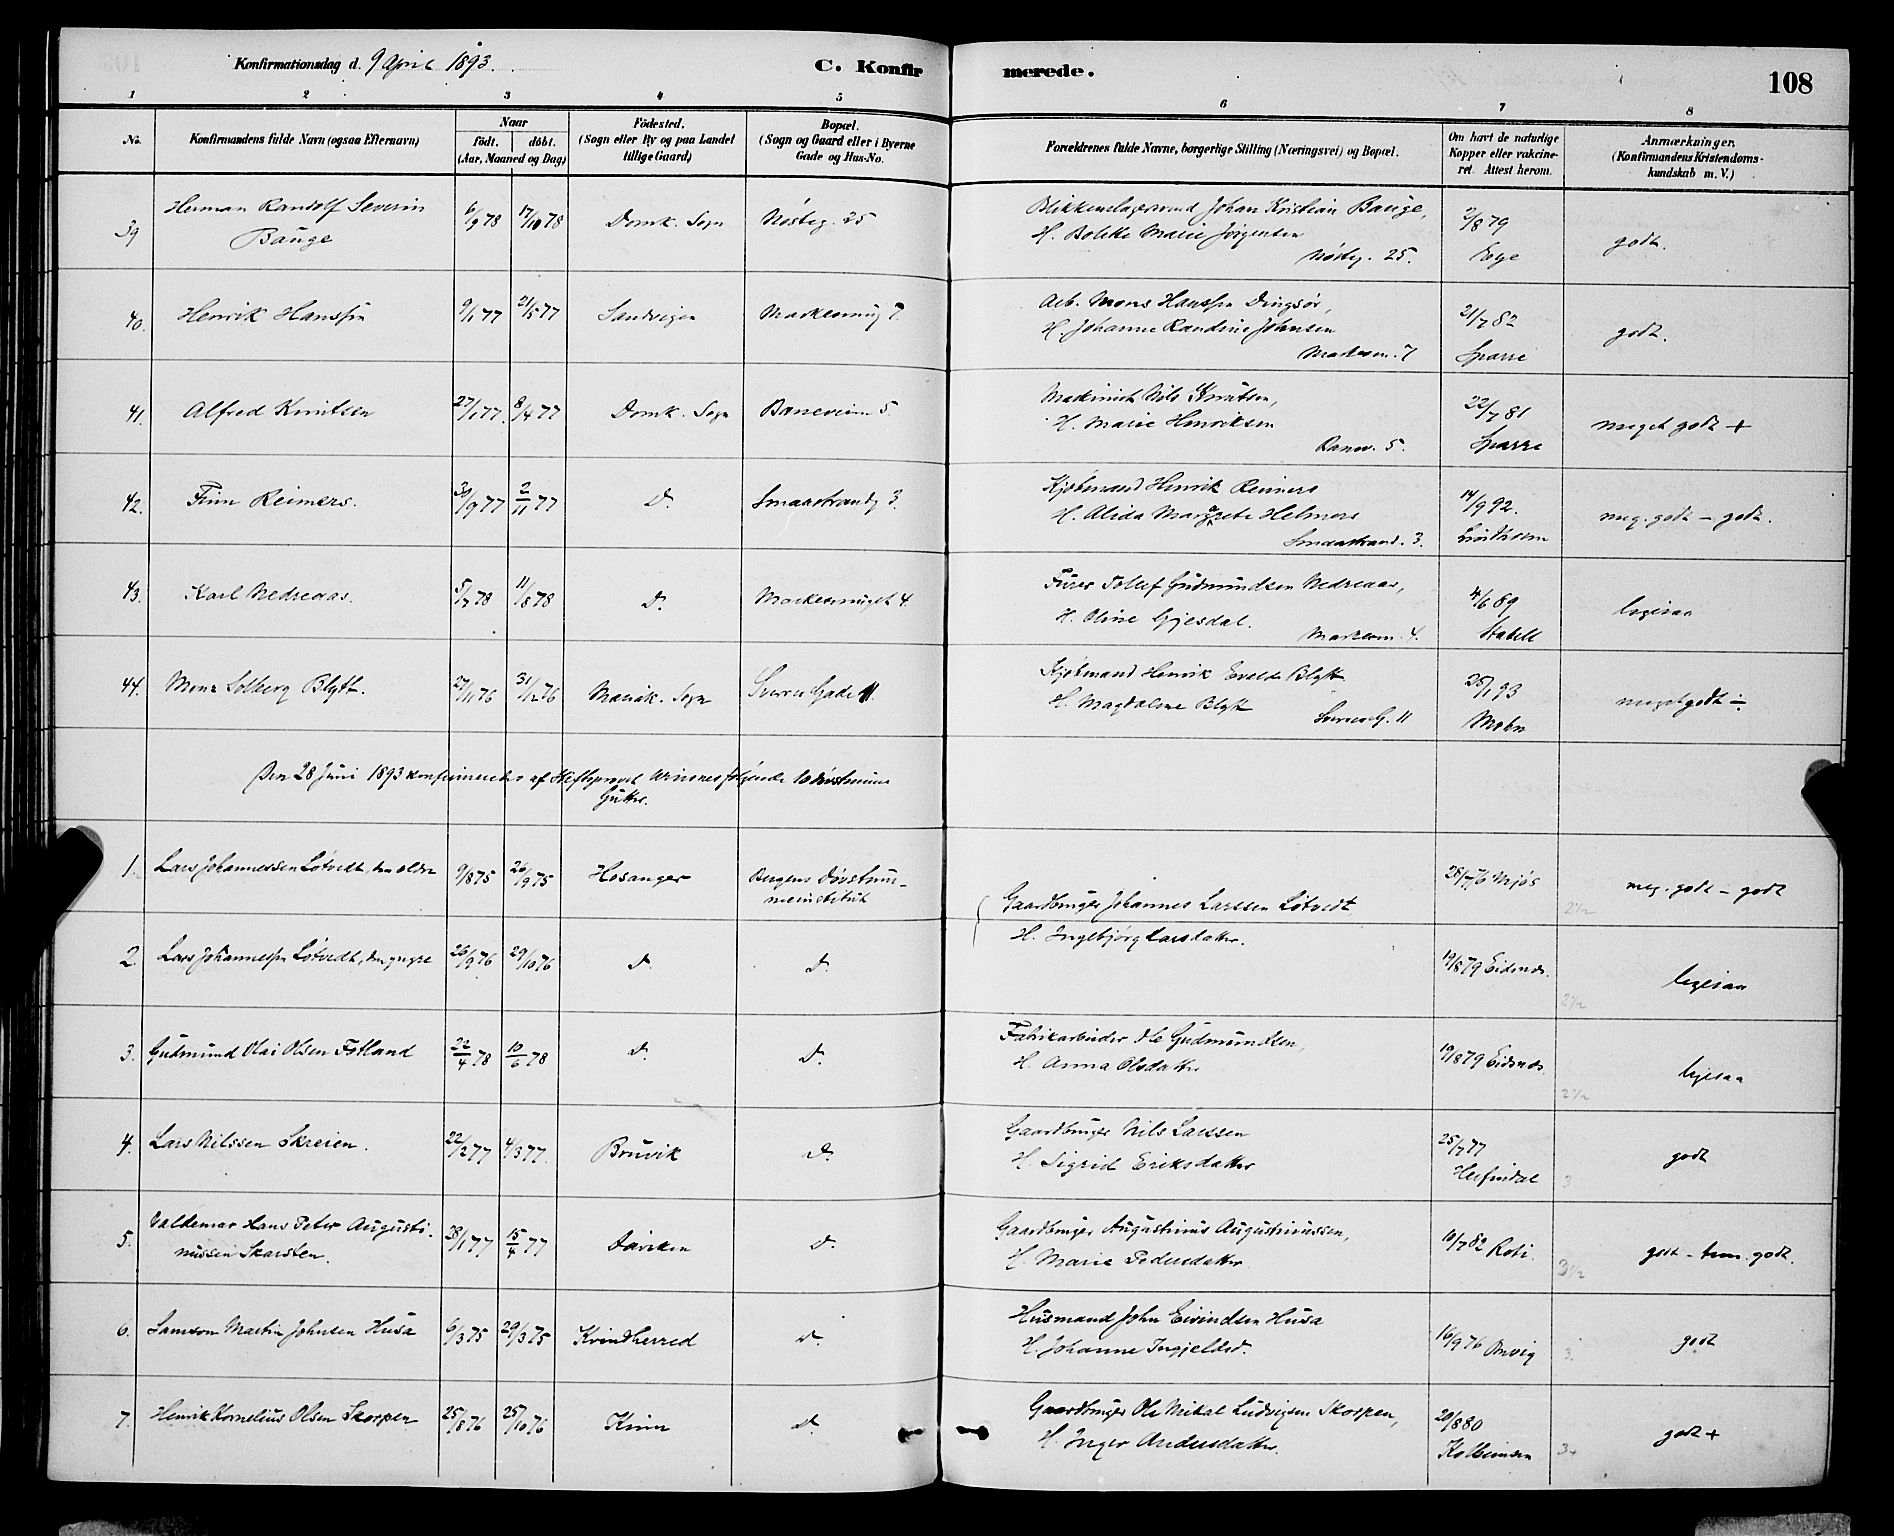 Konfirmationsdag d. 9 April 1893.
C. Konfirmerede.
108
1 2 3 4 5 6 7 8
No.
Konfirmandens fulde Navn (ogsaa Efternavn)
Naar
födt. döbt.
(Aar, Maaned og Dag)
Födested.
(Sogn eller By og paa Landet
tillige Gaard)
Bopæl.
(Sogn og Gaard eller i Byerne
Gade og Hus-No.
Forældrenes fulde Navne, borgerlige Stilling (Næringsvei) og Bopæl.
Om havt de naturlige
Kopper eller vakcine-
ret. Attest herom.
Anmærkninger.
(Konfirmandens Kristendoms-
kundskab m. V.)
39 Herman Randolf Severin 6/9 78 17/10 78 Domk. Sogn Nøsteg. 25 Johan Kristian Bauge, 2/8 79 godt.
Bauge H. Bolette Marie Jørgensen
Nøsteg. 25.
40. Henrik Hanssen 9/1 77 21/5 77 Sandvigen 7. Arb. Mons Hanssen Dingsør, 21/7 82 godt.
H. Johanne Randine Johnsen
7 Sparre
41. Alfred Knutsen 27/1 77. 8/4 77 Domk. Sogn Baneveien 5. Maskinist Nils Knutsen, 22/7 81 meget godt +
H. Marie Henriksen
Banev. 5. Sparre
42. Finn Reimers. 30/9 77 2/11 77 D. Smaastrandg 3 Kjøbmand Henrik Reimers 14/9 92. meg. godt - godt.
H. Alida Margrete Helmers
Smaastrand. 3.
43. Karl Nedreaas. 5/7 78 11/8 78 D. Markesmuget 4. Tollef Gudmundsen Nedreaas, 4/6 89 ligesaa
H. Oline Gjesdal.
4. Stabell
44. Mons Solberg Blytt. 27/11 76 31/12 76 Mariak. Sogn Sverres Gade 11. Kjøbmand Henrik Evald Blytt 25/1 93 meget godt ÷
H. Magdalene Blytt
Sverres G. 11 Mohn
Den 28 Juni 1893 konfirmeredes af Stiftsprovst følgende 10 døvstumme
Gutter.
1. Lars Johannessen Løtvedt, den eldre 9/8 75 26/9 75 Hosanger Bergens Døvstum-
meinstitut 28/7 76 Mjøs 2 1/2 meg. godt - godt
Gaardbruger Johannes Larssen Løtvedt
H. Ingebjørg Larsdatter.
2. Lars Johannessen Løtvedt, den yngre 26/9 76 29/10 76 d. D. 19/8 79 Eidsnes. 2 1/2 ligesaa
3. Gudmund Olai Olsen Fotland 22/4 78 10/6 78 d. D. Fabrikarbeider Ole Gudmundsen, 19/8 79 Eidsnes. 2 1/2 ligesaa
H. Anna Olsdatter
4. Lars Nilssen Skreien. 22/2 77 4/3 77. Bruvik D. Gaardbruger Nils Larssen 25/7 77 3 godt
H. Sigrid Eriksdatter Herfindal
5. Valdemar Hans Peter Augusti- 28/1 77 15/4 77 Daviken D. Gaardbruger Augustinus Augustinussen, 10/7 82 Roti. 3 1/2 godt - tem. godt.
nussen Skarsten. H. Marie Pedersdatter
6. Samson Martin Johnsen Husa 6/3 75 29/3 75 Kvindherred D. Husmand John Eivindsen Husa 16/9 76 Omvig 3. godt
H. Johanne Ingjeldsd.
7. Henrik Kornelius Olsen Skorpen 25/8 76 25/10 76 Kinn D. Gaardbruger Ole Mikal Ludvigsen Skorpen, 20/8 80 3+ godt +
H. Inger Andersdatter. Kolbeinsen